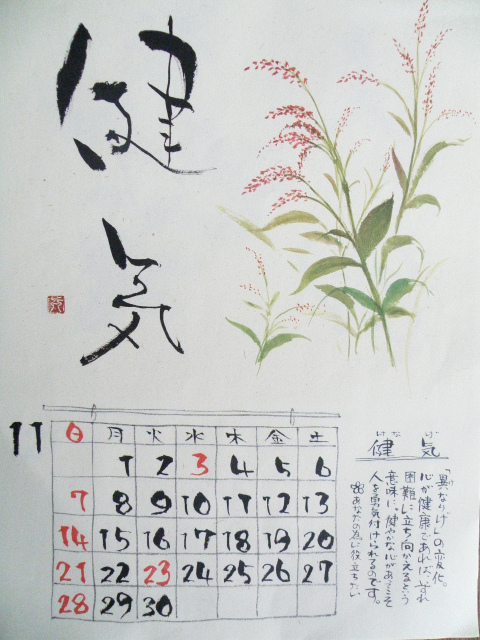 健
気
11
日 月 火 水 木 金 土
1 2 3 4 5 6
7 8 9 10 11 12 13
14 15 16 17 18 19 20
21 22 23 24 25 26 27
28 29 30
けなげ
健気
「異なりげ」の変化。
心が健康であれば、いずれ
困難に立ち向かえるという
意味に。健やかな心があってこそ
人を勇気付けられるのです。
あなたの為に役立ちたい